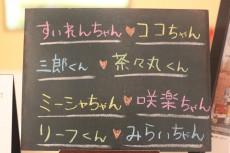 すいれんちゃん♥ココちゃん
三郎くん♥茶々丸くん
ミーシャちゃん♥咲楽ちゃん
リーフくん♥みらいちゃん